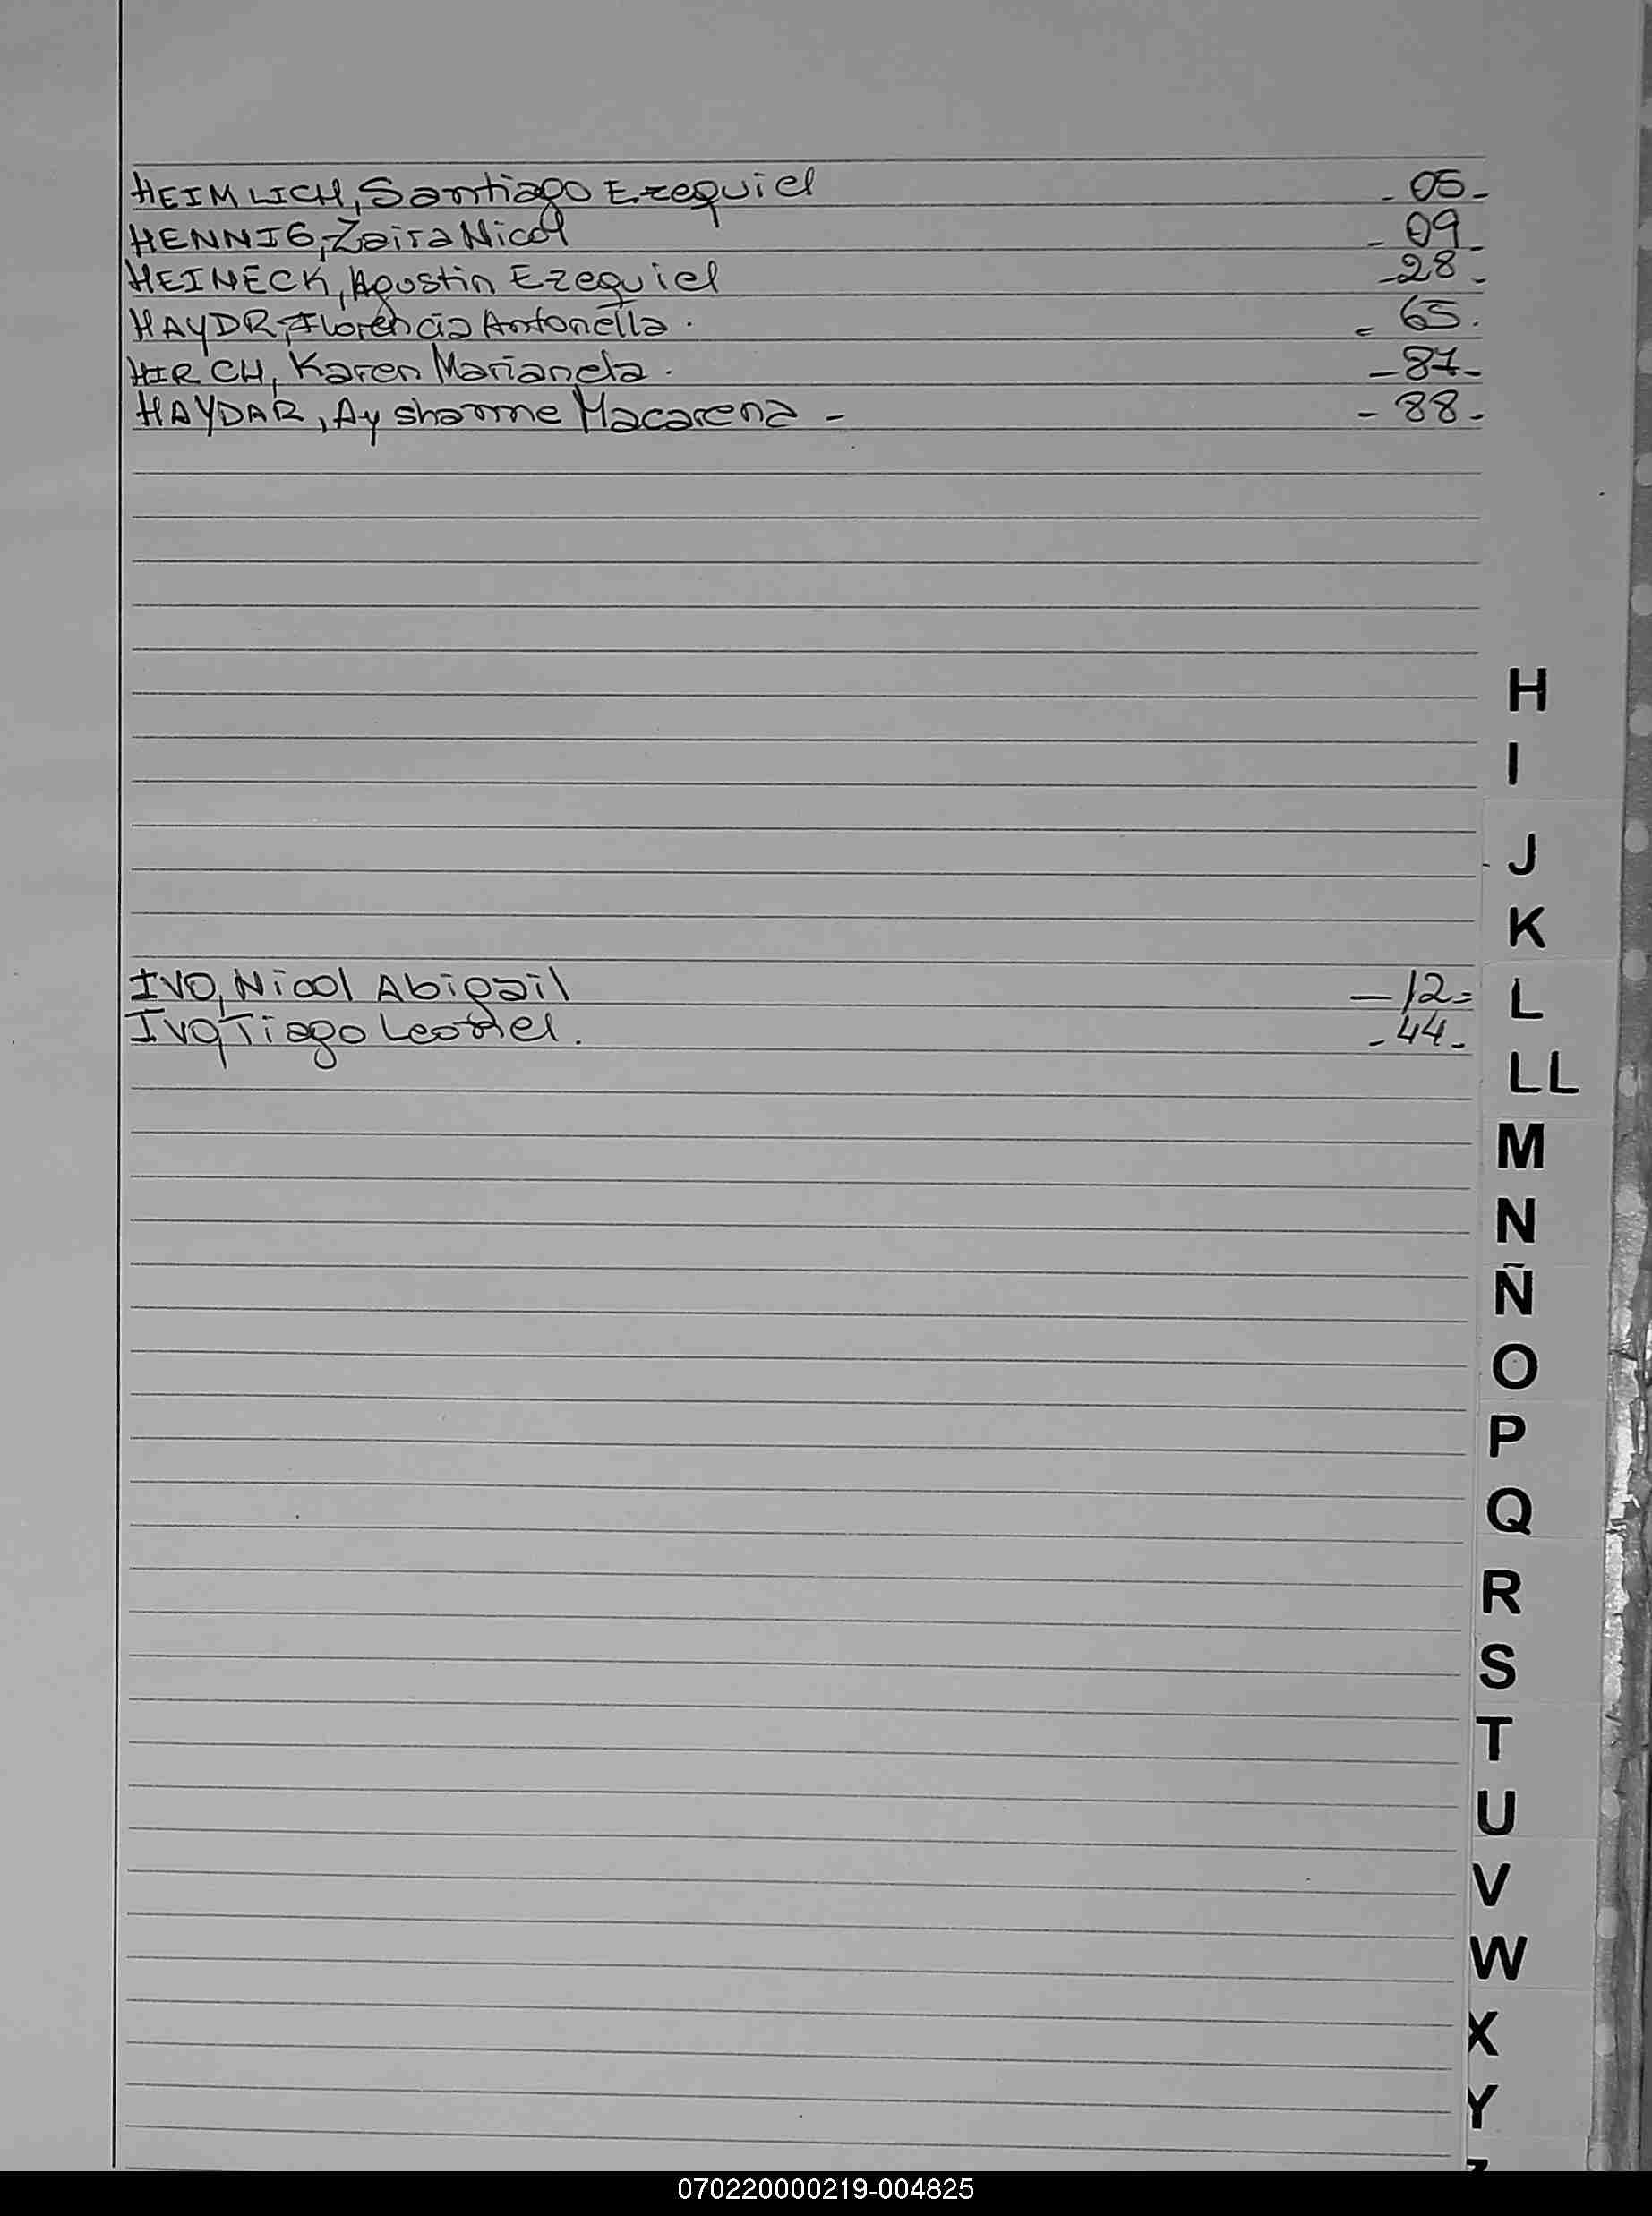 HEIMLICH, Santiago Ezequiel - 05 -
HENNIG, Zaira Nicol - 09 -
HEINECK, Agustin Ezequiel - 28 -
HAYDR, Florencia Antonella . - 65 .
HIRCH, Karen Marianela . - 87 -
HAYDAR, Ayshamme Macarena - - 88 -
H
I
J
K
IVO, Nicol Abigail - 12 =
L
Ivo, Tiago Leonel . - 44 -
LL
M
N
Ñ
O
P
Q
R
S
T
U
V
W
X
Y
070220000219-004825